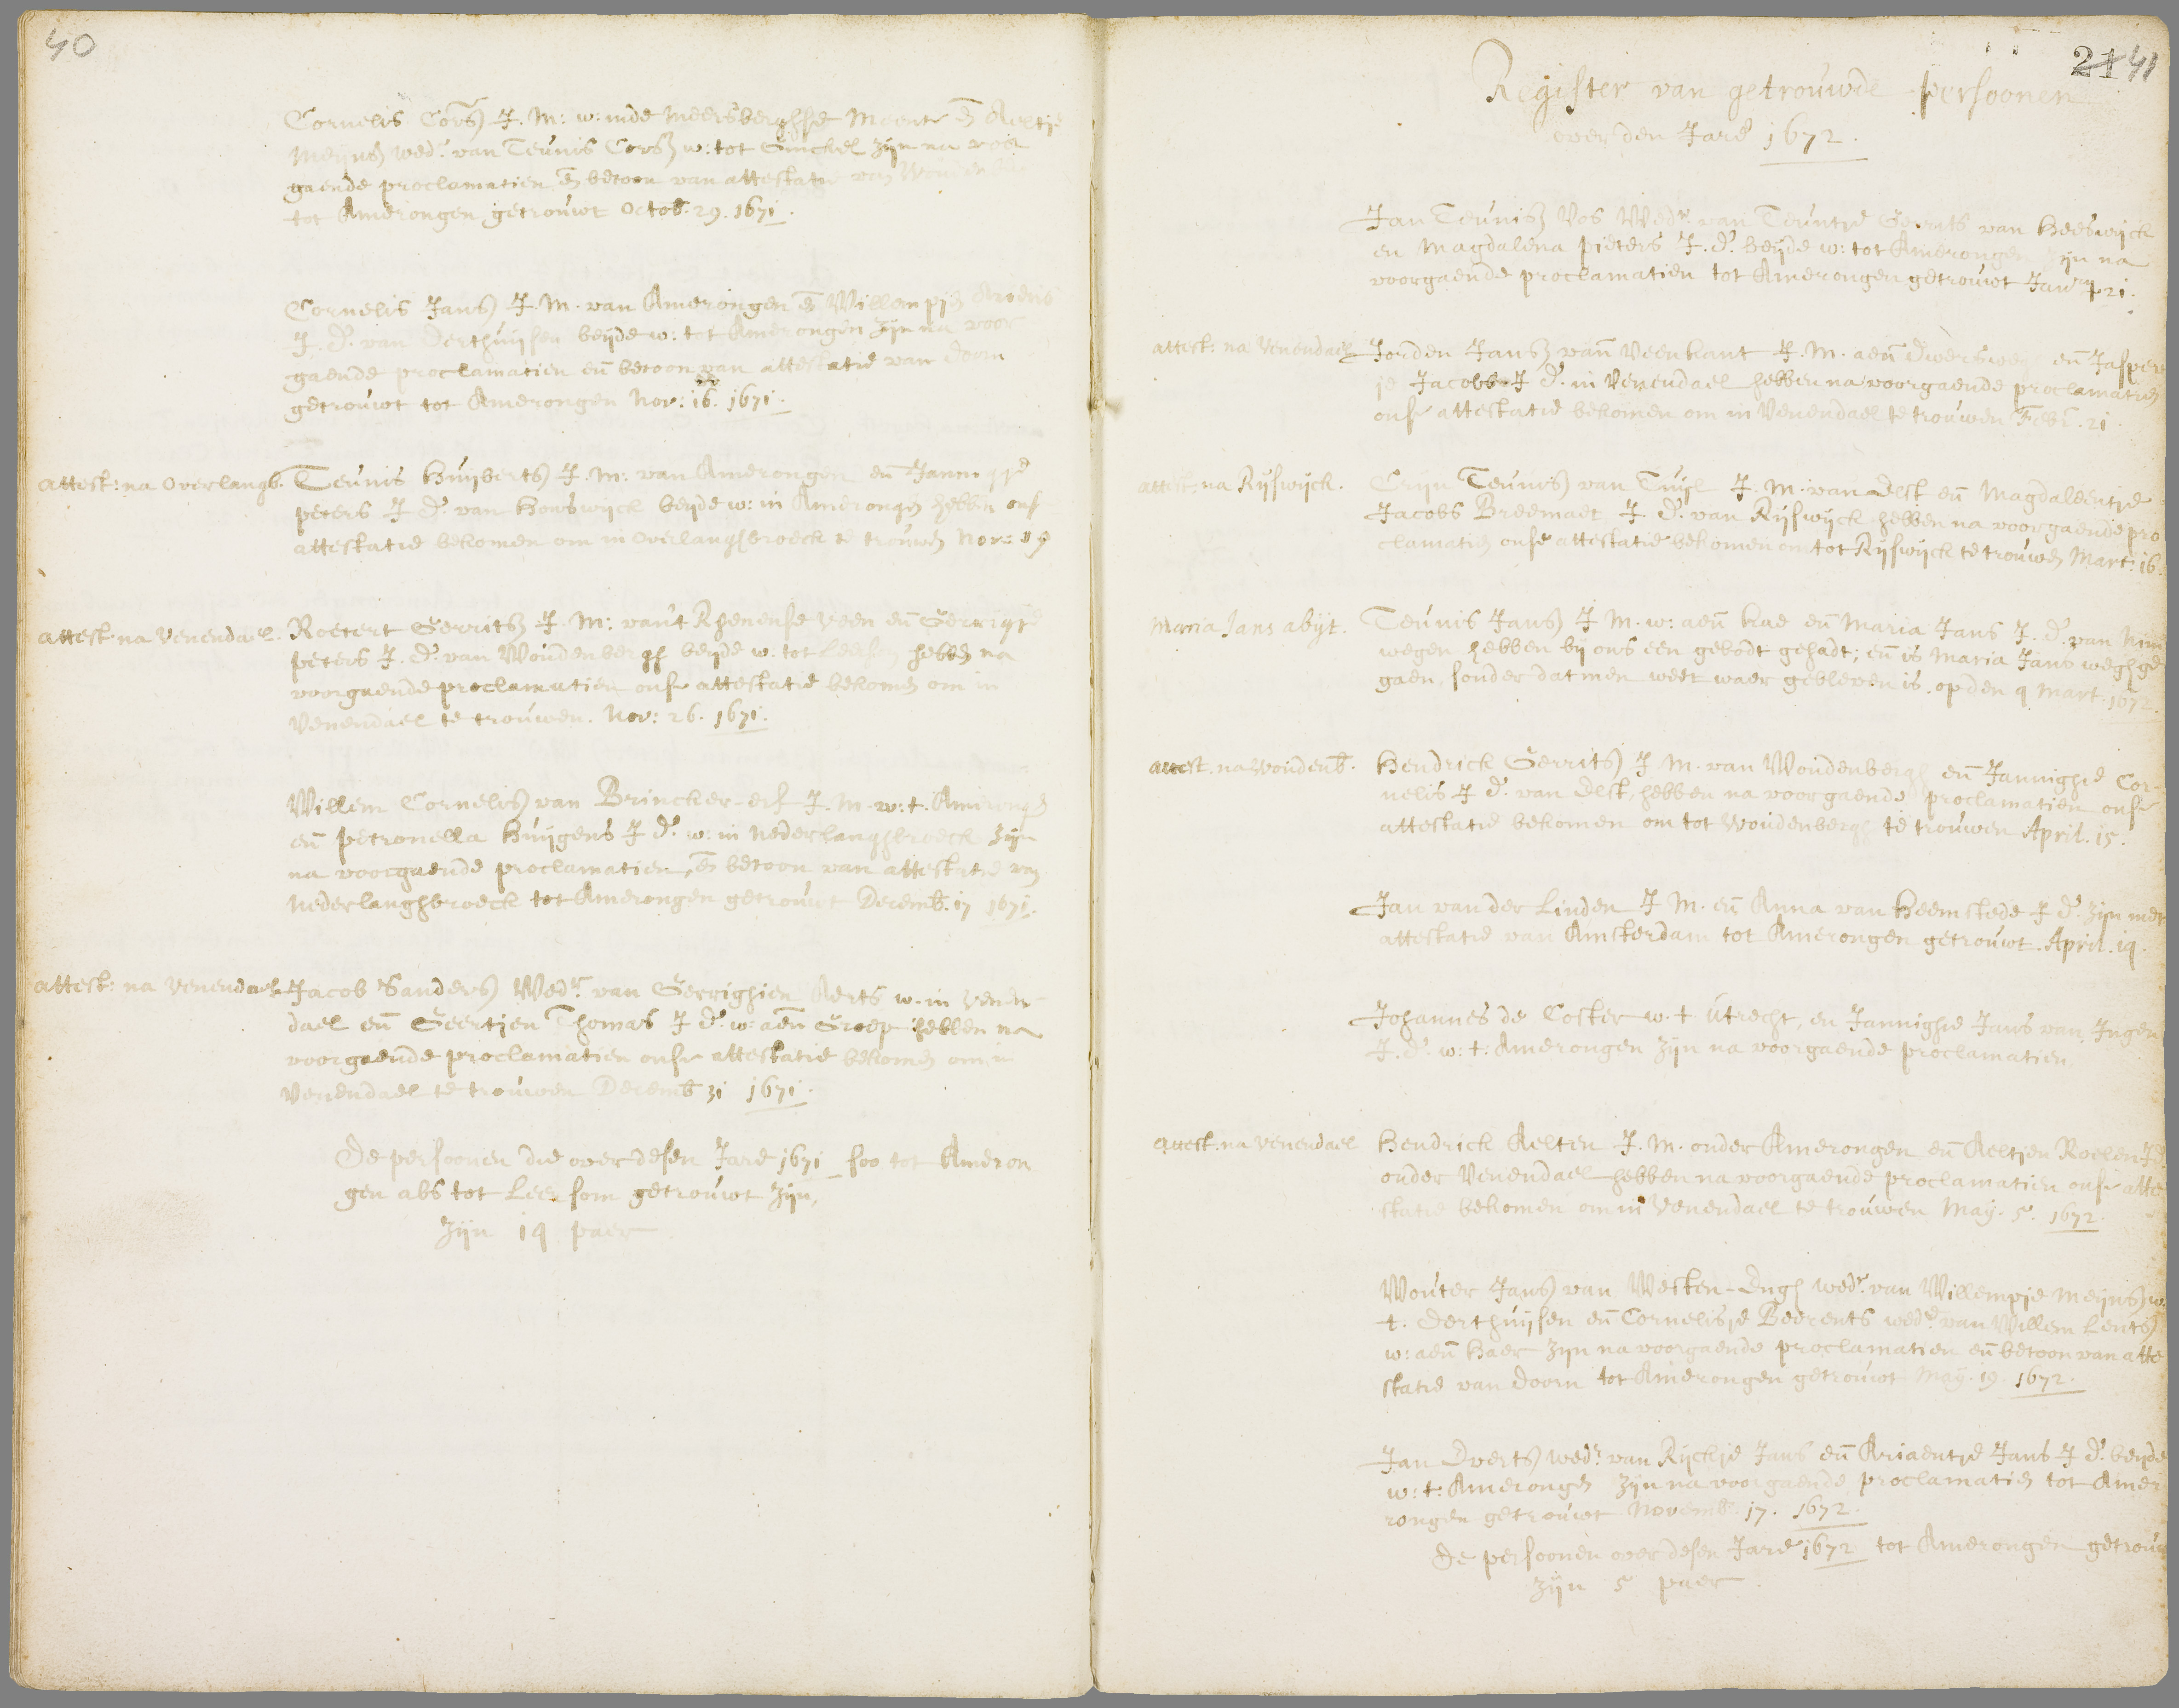 40
Cornelis Corsz J. M: w: inde Meersberghse Meent en Aeltje
Meijnsz wed.e van Teunis Corsz w: tot Ginckel zijn na voor
gaende proclamatien en betoon van attestatie van Wouden
tot Amerongen getrouwt Octob. 29. 1671.
Cornelis Jansz J. M. van Amerongen en Willempjen Ariens
J. D. van Derthuijsen beijde w: tot Amerongen zijn na voor
gaende proclamatien en betoon van attestatie van Doorn
getrouwt tot Amerongen Nov: 16. 1671.
attest: na Overlangb. Teunis Huijbertsz J. M: van Amerongen en Jannigje
peters J. D. van Houswijck beijde w: in Amerongen hebben onse
attestatie bekomen om in Overlanghbroeck te trouwen Nov: 19
attest. na Venendael. Roetert Gerritsz J. M: van't Rhenense veen en Gerrigje
peters J. D. van Woudenbergh beijde w. tot Leersum hebben na
voorgaende proclamatien onse attestatie bekomen om in
Venendael te trouwen. Nov: 26. 1671.
Willem Cornelisz van Brincker-erf J. M. w: t. Amerongen
en petronella Huijgens J. D. w: in Nederlanghbroeck zijn
na voorgaende proclamatien, en betoon van attestatie van
Nederlanghbroeck tot Amerongen getrouwt Decemb. 17 1671.
attest: na Venendael. Jacob Sandersz Wed.r van Gerrighien Aerts w. in Venen
dael en Geertjen Thomas J. D. w: aen Groep hebben na
voorgaende proclamatien onse attestatie bekomen om in
Venendael te trouwen Decemb 31 1671.
De persoonen die over desen Jare 1671 soo tot Ameron
gen als tot Leersom getrouwt zijn,
zijn 19 paer
21 41
Register van getrouwde persoonen
over den Jare 1672.
Jan Teunisz Vos Wed.r van Teuntje Gerrits van Heeswijck
en Magdalena pieters J. D. beijde w: tot Amerongen zijn na
voorgaende proclamatien tot Amerongen getrouwt Jan. 21.
attest: na Venendael Jorden Jansz van Veenkant J. M. aen Dwersweg en Jasper
je Jacobs J D. in Venendael hebben na voorgaende proclamatien
onse attestatie bekomen om in Venendael te trouwen Febr. 21.
attest. na Rijswijck. Crijn Teunisz van Tuijl J. M. van Elst en Magdaleentje
Jacobs Breemaet J D. van Rijswijck hebben na voorgaende pro
clamatien onse attestatie bekomen om tot Rijswijck te trouwen Mart: 16.
Maria Jans abijt. Teunis Jansz J M. w: aen kae en Maria Jans J. D. van Nim
wegen hebben bij ons een gebodt gehadt; en is Maria Jans weghge
gaen, sonder datmen weet waer gebleven is. op den 9 Mart. 1672.
attest. na Woudenb. Hendrick Gerritsz J M. van Woudenbergh en Jannighe Cor-
nelis J D. van Elst, hebben na voorgaende proclamatien onse
attestatie bekomen om tot Woudenbergh te trouwen April. 15.
Jan van der Linden J M. en Anna van Heemstede J D. zijn met
attestatie van Amsterdam tot Amerongen getrouwt. April. 19.
Johannes de Coster w. t. Utrecht, en Jannighe Jans van Ingen
J. D. w: t: Amerongen zijn na voorgaende proclamatien
attest. na Venendael Hendrick Aelten J. M. onder Amerongen en Aeltjen Roelen J D.
onder Venendael hebben na voorgaende proclamatien onse atte
statie bekomen om in Venendael te trouwen May. 5. 1672.
Wouter Jansz van Westen-Engh wed.r van Willempje Meijnsz w.
t. Derthuijsen en Cornelisje Beerents wed.e van Willem Lentsz
w: aen Haer zijn na voorgaende proclamatien en betoon van atte
statie van Doorn tot Amerongen getrouwt May. 19. 1672.
Jan Evertsz wed.r van Rijckje Jans en Ariaentje Jans J D. beijde
w: t: Amerongen zijn na voorgaende proclamatien tot Ame
rongen getrouwt Novemb. 17. 1672.
De persoonen over desen Jare 1672 tot Amerongen getrouw
zijn 5 paer